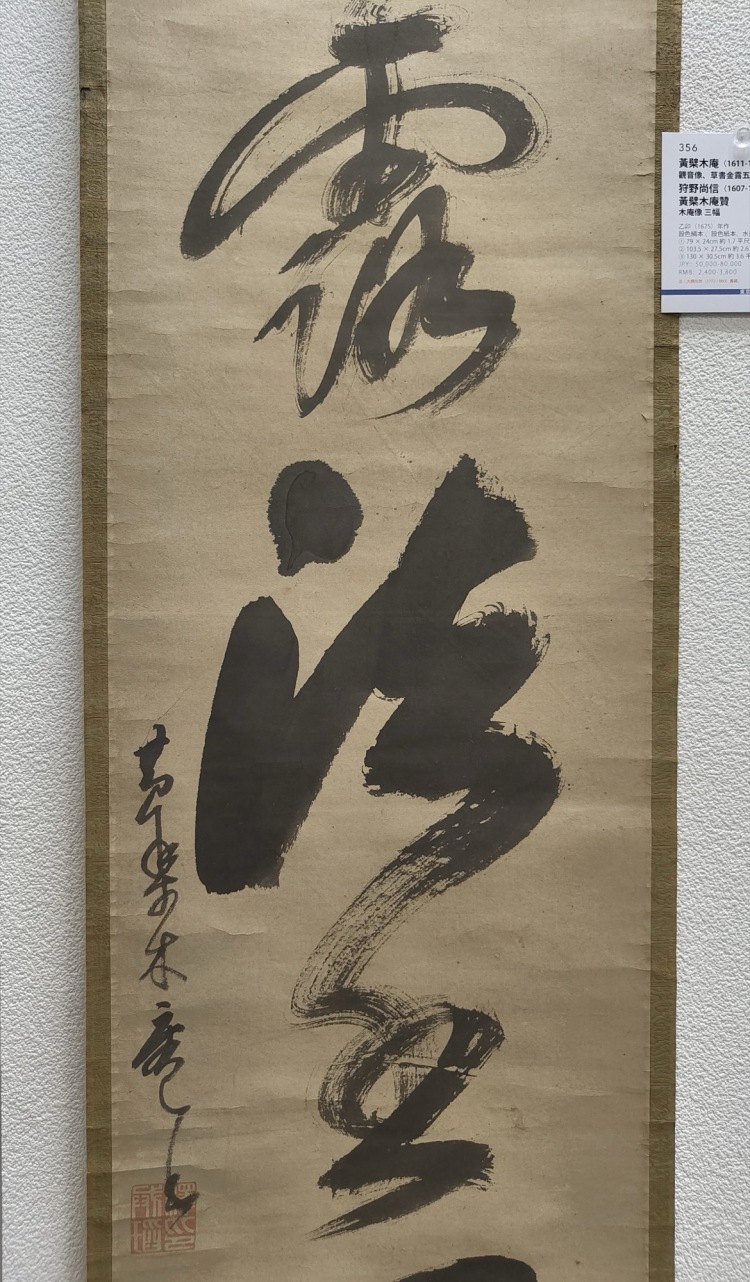 露
五
黃檗木庵書
356
黃檗木庵（1611-1
觀音像、草書金露五
狩野尚信（1607-1
黃檗木庵贊
木庵像 三幅
乙卯（1675）年作
設色絹本、設色紙本、水
① 79 × 24cm 約 1.7 平尺
② 103.5 × 27.5cm 約 2.6
③ 130 × 30.5cm 約 3.6 平
JPY: 50,000-80,000
RMB: 2,400-3,600